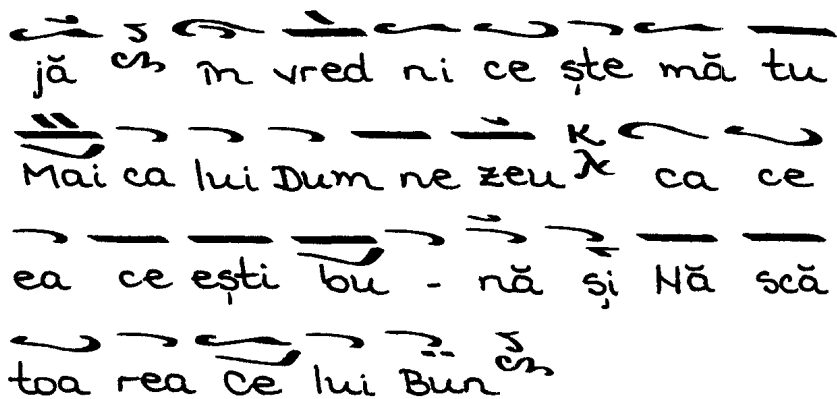 jă în vred ni ce ște mă tu
Mai ca lui Dum ne zeu ca ce
ea ce ești bu - nă și Nă scă
toa rea Ce lui Bun